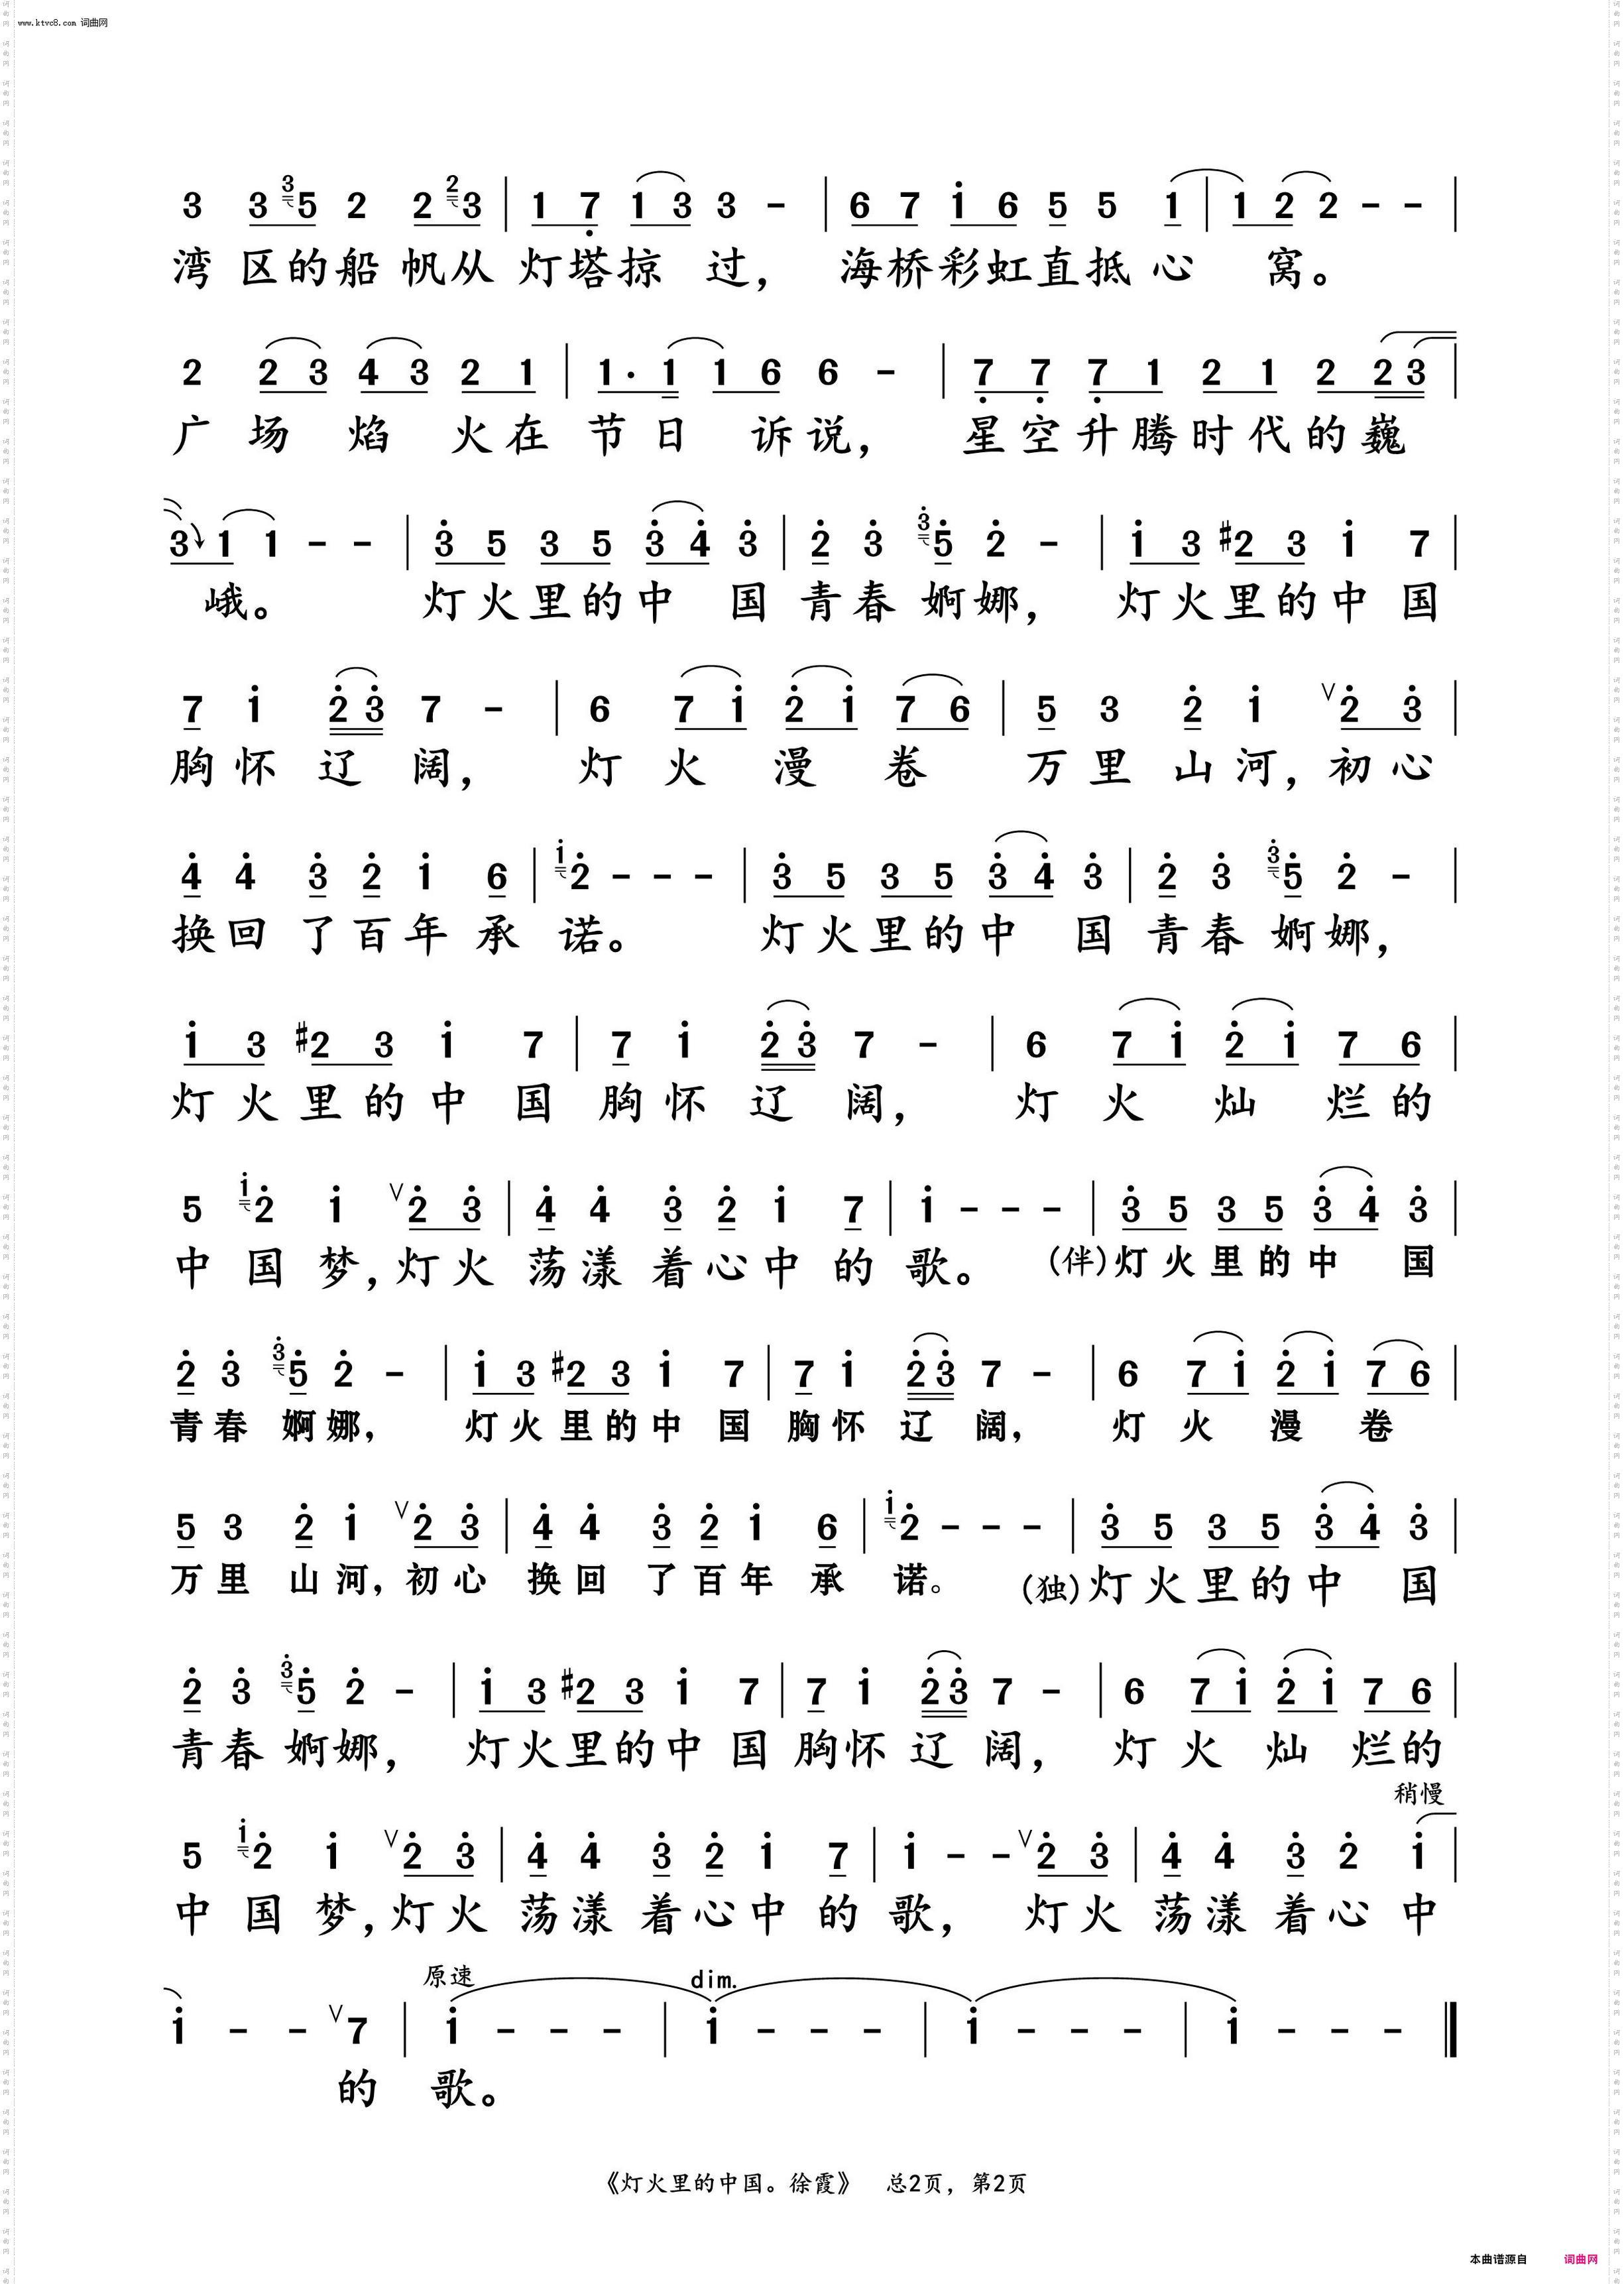 www.ktvc8.com 词曲网
3 3 3 5 2 2 2 3 | 1 7 1 3 3 - | 6 7 1 6 5 5 1 | 1 2 2 - - |
湾 区的船 帆从 灯塔掠 过， 海桥彩虹直抵 心 窝。
2 2 3 4 3 2 1 | 1· 1 1 6 6 - | 7 7 7 1 2 1 2 2 3 |
广 场 焰 火在 节日 诉说， 星空升腾时代的巍
3 1 1 - - | 3 5 3 5 3 4 3 | 2 3 3 5 2 - | 1 3 #2 3 1 7 |
峨。 灯火里的中 国 青春 婀娜， 灯火里的中 国
7 1 2 3 7 - | 6 7 1 2 1 7 6 | 5 3 2 1 ∨2 3 |
胸怀 辽 阔， 灯 火 漫 卷 万里 山河，初心
4 4 3 2 1 6 | 1 2 - - - | 3 5 3 5 3 4 3 | 2 3 3 5 2 - |
换回 了百年 承 诺。 灯火里的中 国 青春 婀娜，
1 3 #2 3 1 7 | 7 1 2 3 7 - | 6 7 1 2 1 7 6 |
灯火里的中 国 胸怀 辽 阔， 灯 火 灿 烂的
5 1 2 1 ∨2 3 | 4 4 3 2 1 7 | 1 - - - | 3 5 3 5 3 4 3 |
中 国 梦，灯火 荡漾 着心中 的 歌。 (伴)灯火里的中 国
2 3 3 5 2 - | 1 3 #2 3 1 7 | 7 1 2 3 7 - | 6 7 1 2 1 7 6 |
青春 婀娜， 灯火里的中 国 胸怀 辽 阔， 灯 火 漫 卷
5 3 2 1 ∨2 3 | 4 4 3 2 1 6 | 1 2 - - - | 3 5 3 5 3 4 3 |
万里 山河，初心 换回 了百年 承 诺。 (独)灯火里的中 国
2 3 3 5 2 - | 1 3 #2 3 1 7 | 7 1 2 3 7 - | 6 7 1 2 1 7 6 |
青春 婀娜， 灯火里的中 国 胸怀 辽 阔， 灯 火 灿 烂的
稍慢
5 1 2 1 ∨2 3 | 4 4 3 2 1 7 | 1 - - ∨2 3 | 4 4 3 2 1 |
中 国 梦，灯火 荡漾 着心中 的 歌， 灯火 荡漾 着心 中
原速 dim.
1 - - ∨7 | 1 - - - | 1 - - - | 1 - - - | 1 - - - ‖
的 歌。
《灯火里的中国。徐霞》 总2页，第2页
本曲谱源自 词曲网